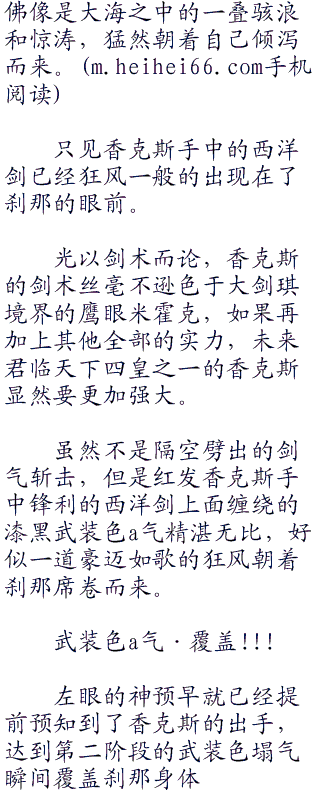 佛像是大海之中的一叠骇浪
和惊涛，猛然朝着自己倾泻
而来。(m.heihei66.com手机
阅读)
只见香克斯手中的西洋
剑已经狂风一般的出现在了
刹那的眼前。
光以剑术而论，香克斯
的剑术丝毫不逊色于大剑琪
境界的鹰眼米霍克，如果再
加上其他全部的实力，未来
君临天下四皇之一的香克斯
显然要更加强大。
虽然不是隔空劈出的剑
气斩击，但是红发香克斯手
中锋利的西洋剑上面缠绕的
漆黑武装色a气精湛无比，好
似一道豪迈如歌的狂风朝着
刹那席卷而来。
武装色a气·覆盖!!!
左眼的神预早就已经提
前预知到了香克斯的出手，
达到第二阶段的武装色塌气
瞬间覆盖刹那身体